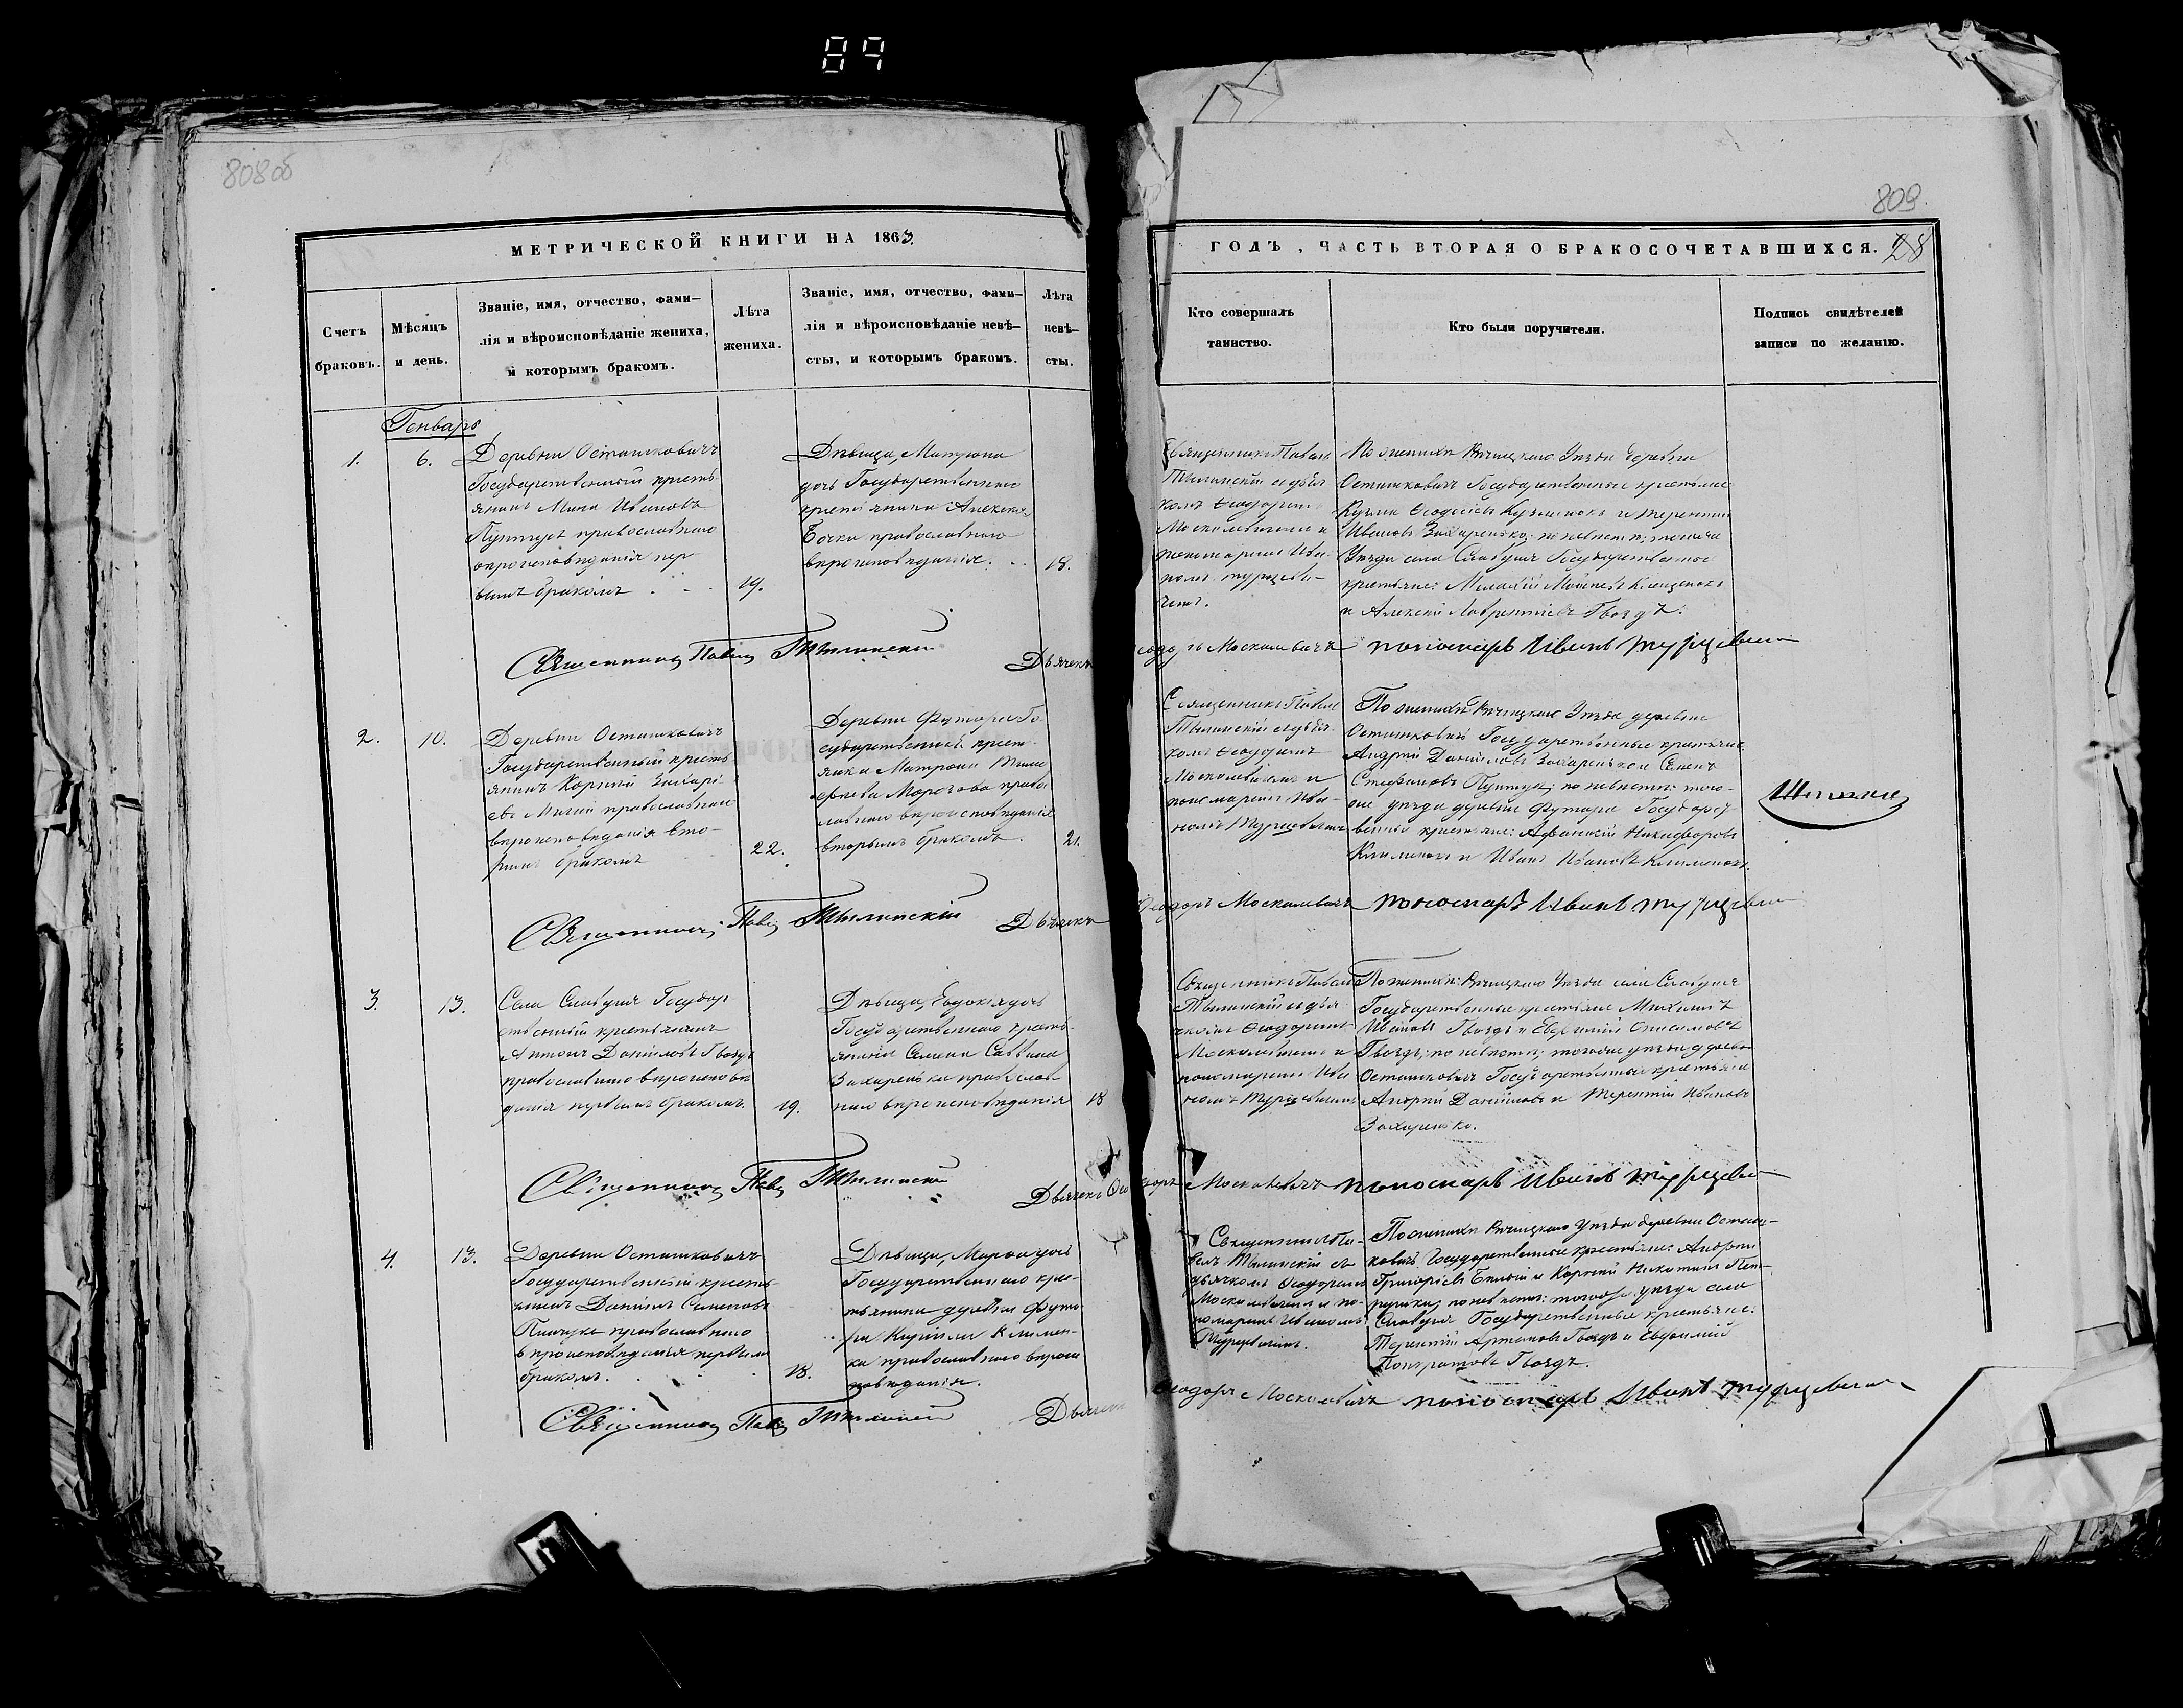 89
808об
809.
МЕТРИЧЕСКОЙ КНИГИ НА 1863.
Счетъ
браковъ.
Мѣсяцъ
и день.
Званіе, имя, отчество, фами-
лія и вѣроисповѣданіе жениха,
и которымъ бракомъ.
Лѣта
жениха.
Званіе, имя, отчество, фами-
лія и вѣроисповѣданіе невѣ-
сты, и которымъ бракомъ.
Лѣта
невѣ-
сты.
ГОДЪ, ЧАСТЬ ВТОРАЯ О БРАКОСОЧЕТАВШИХСЯ. 28
Кто совершалъ
таинство.
Кто были поручители.
Подпись свидѣтелей
записи по желанію.
Генварь
1.
6.
Деревни Осташковичъ
Государственный кресть-
янинъ Мина Ивановъ
православнаго
вѣроисповѣданія пер
вымъ бракомъ
19.
Дѣвица, Матрона
дочь Государственнаго
крестьянина Алексея
Бочки православнаго
вѣроисповѣданія.
18.
Священникъ Павелъ
съ дьяч
комъ Ѳеодоромъ
Москалевичемъ и
пономаремъ Ива-
номъ Турцеви-
чемъ.
По женихѣ Рѣчицкаго Уѣзда деревни
Осташковичъ Государственные крестьяне
Кузма Ѳеодосіевъ и Терентій
Ивановъ Захаренько; по невѣстѣ; тогоже
Уѣзда села Государственные
крестьяне:
и Алексѣй Лаврентіевъ Гвоздъ.
Священникъ Павелъ
Дьячекъ
Ѳеодоръ Москалевичъ пономарь Иванъ Турцевичъ
2.
10.
Деревни Осташковичъ
Государственный кресть-
янинъ Корнѣй Захарі-
евъ православнаго
вѣроисповѣданія вто-
рымъ бракомъ
22.
Деревни Футоры Го-
сударственная крест-
янка Матрона Тимо
фѣева Морозова право
славнаго вѣроисповѣданія
вторымъ бракомъ.
21.
Священникъ Павелъ
съ дьяч-
комъ Ѳеодоромъ
Москалевичемъ и
пономаремъ Ива-
номъ Турцевичемъ
По женихѣ Рѣчицкаго Уѣзда деревни
Осташковичъ Государственные крестьяне
Андрей Даніиловъ Захаренько и Семенъ
Стефановъ по невѣстѣ: того-
же уѣзда деревни Футоры Государст-
венные крестьяне: Афанасій Никифоровъ
и Иванъ Ивановъ
Священникъ Павелъ
Дьячекъ
Ѳеодоръ Москалевичъ пономарь Иванъ Турцевичъ
3.
13.
Села Государ
ственный крестьянинъ
Антонъ Даніиловъ Гвоздъ
православнаго вѣроисповѣ
данія первымъ бракомъ.
19.
Дѣвица, Евдокія дочь
Государственнаго кресть-
янина Семена Саввина
Захаренька православ-
наго вѣроисповѣданія
18
Священникъ Павелъ
съ дья
чкомъ Ѳеодоромъ
Москалевичемъ и
пономаремъ Ива
номъ Турцевичемъ
По женихѣ Рѣчицкаго Уѣзда села
Государственные крестьяне Михаилъ
Ивановъ Гвоздъ и Онисимовъ
Гвоздъ; по невѣстѣ; тогоже уѣзда деревни
Осташковичъ Государственные крестьяне
Андрей Даніиловъ и Терентій Ивановъ
Захаренько.
Священникъ Павелъ
Дьячекъ Ѳеодоръ Москалевичъ пономарь Иванъ Турцевичъ
4.
13.
Деревни Осташковичъ
Государственный кресть-
янинъ Даніилъ Семеновъ
православнаго
вѣроисповѣданія первымъ
бракомъ.
18.
Дѣвица, Марѳа дочь
Государственнаго кре-
стьянина деревни Футо
ры Кирилла Климен-
ка православнаго вѣроис
повѣданія.
Священникъ Па-
велъ съ
дьячкомъ Ѳеодоромъ
Москалевичемъ и по-
номаремъ Иваномъ
Турцевичемъ.
По женихѣ Рѣчицкаго Уѣзда деревни Осташ-
ковичъ Государственные крестьяне: Андрей
Григоріевъ и Корнѣй
по невѣстѣ: тогоже уѣзда села
Государственные крестьяне:
Терентій Артемовъ Гвоздъ и Евфимій
Гвоздъ.
Священникъ Павелъ
Дьячекъ
Ѳеодоръ Москалевичъ пономарь Иванъ Турцевичъ